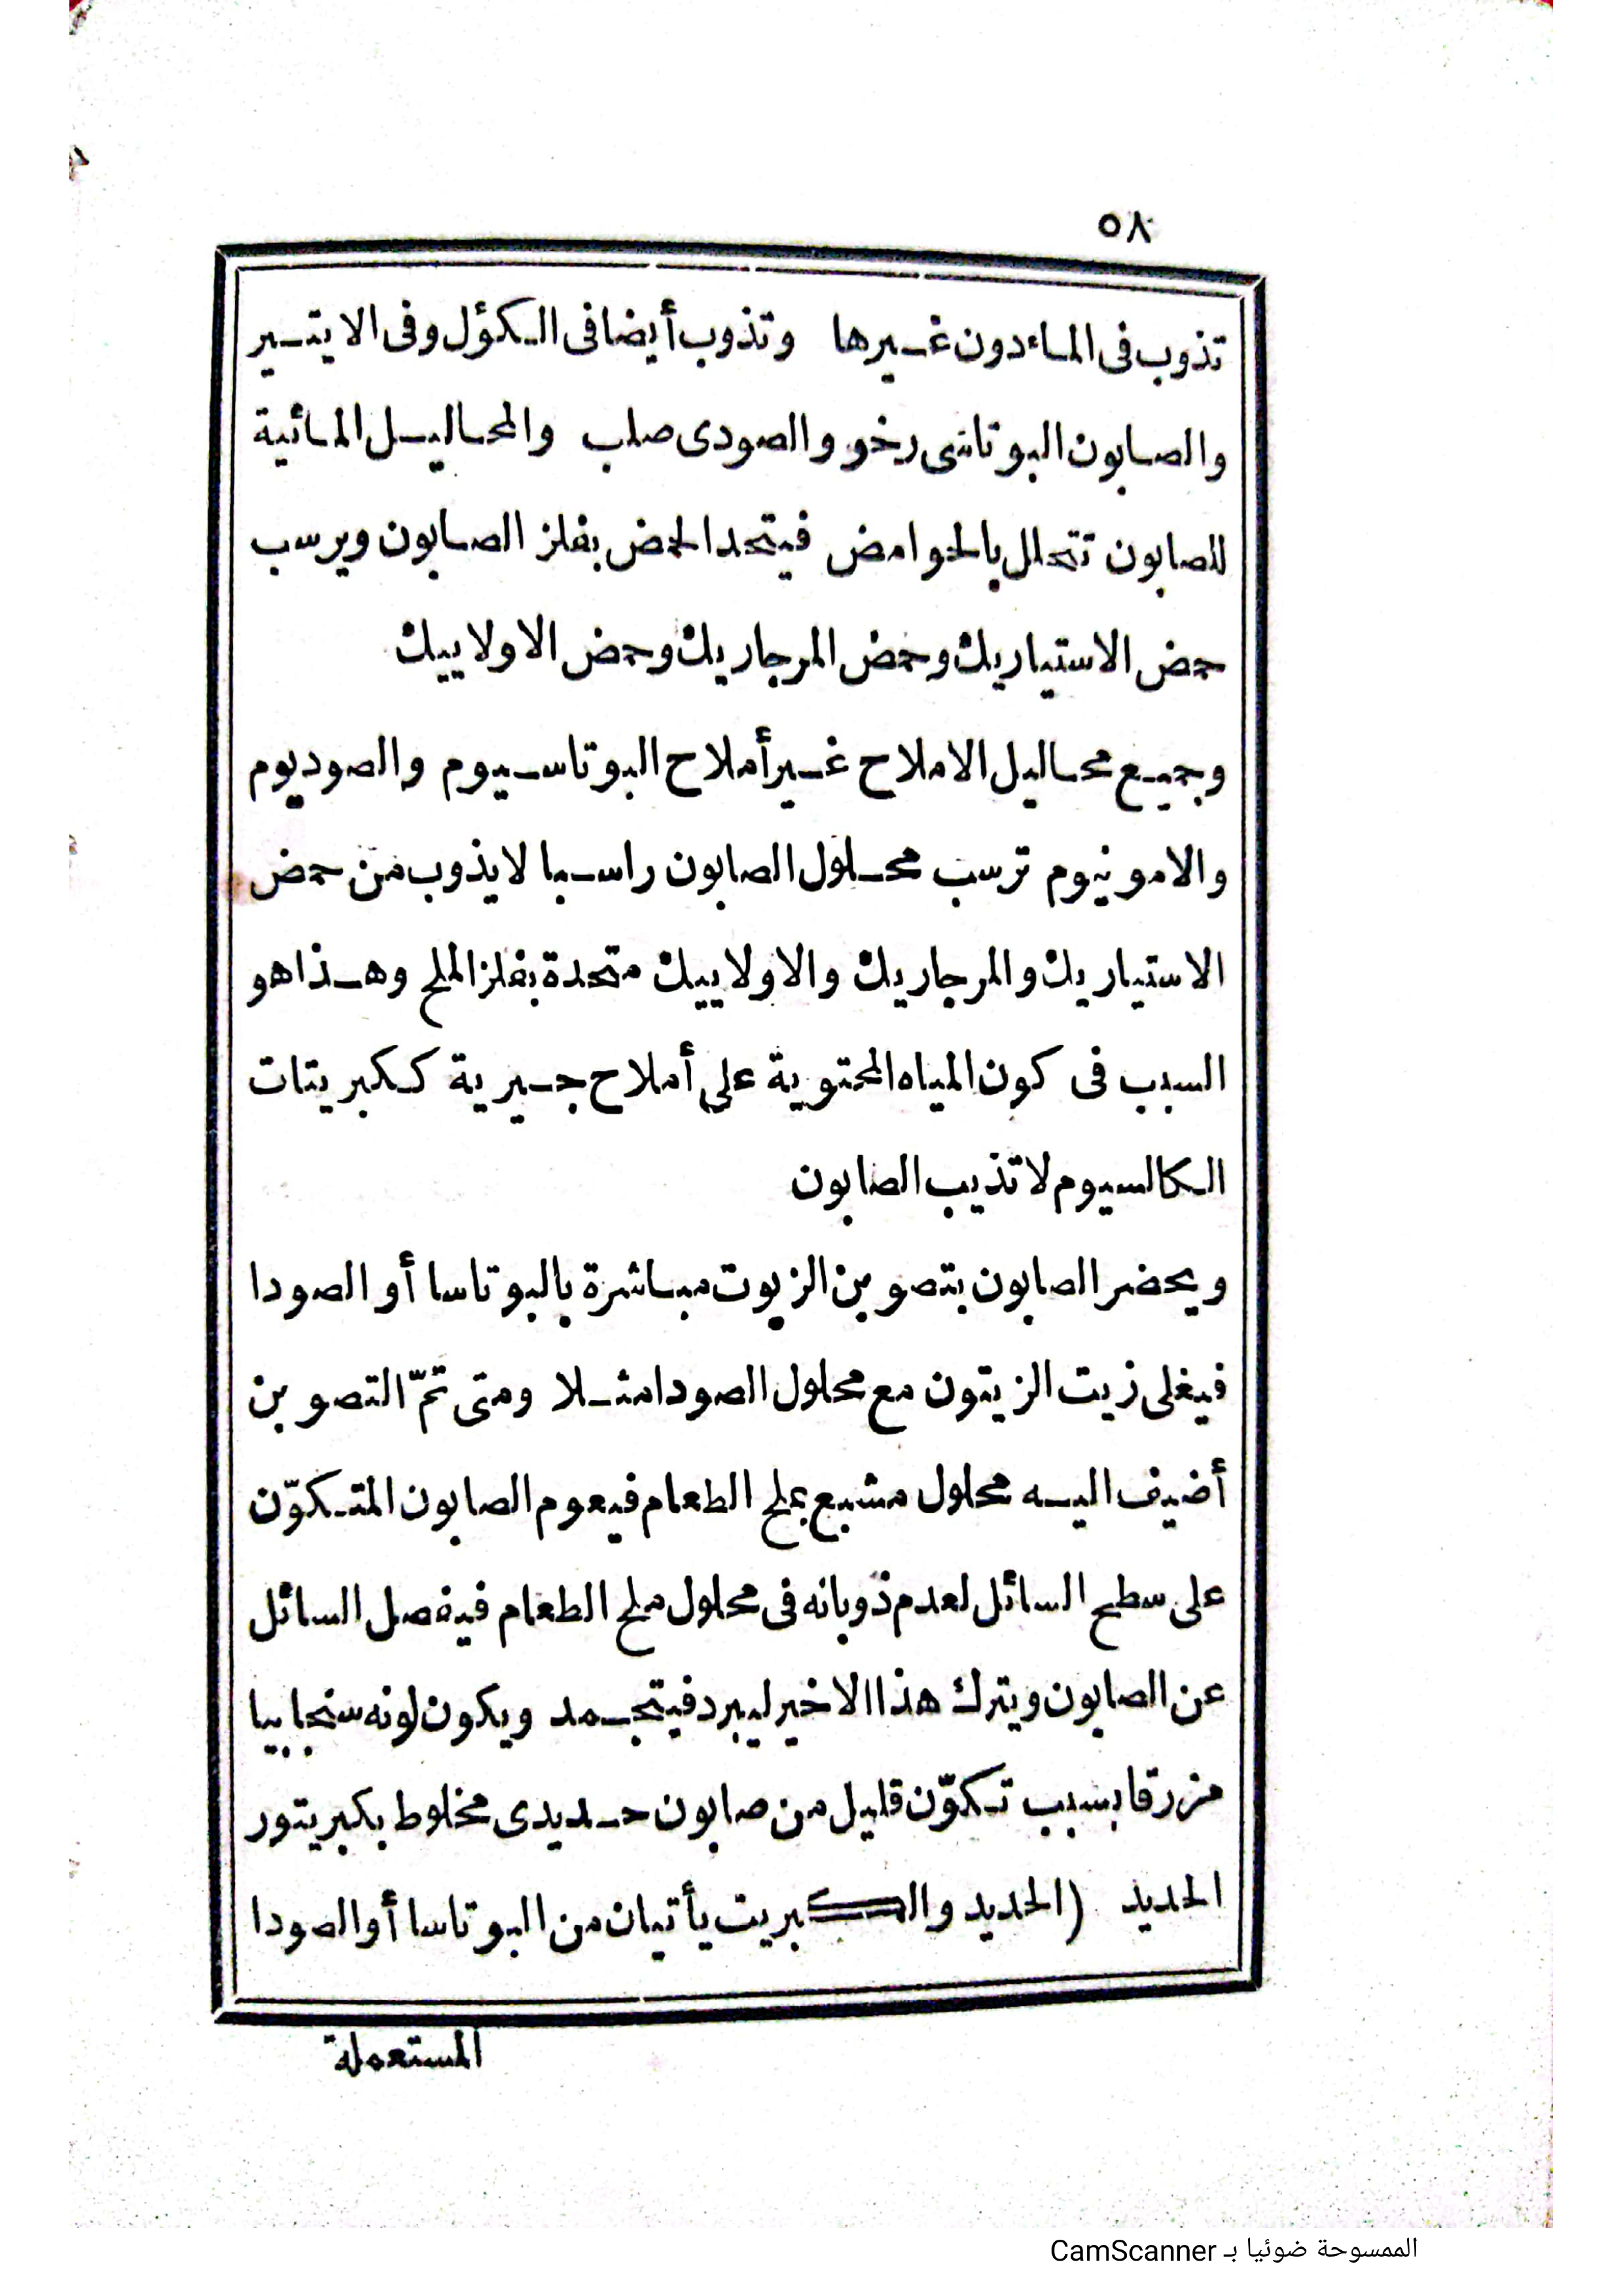 ٥٨
تذوب فى الماء دون غيرها وتذوب أيضا فى الكؤل وفى الايتير
والصابون البوتاسى رخو والصودى صلب والمحاليل المائية
للصابون تتحلل بالحوامض فيتحد الحمض بفلز الصابون ويرسب
حمض الاستياريك وحمض المرجاريك وحمض الاولاييك
وجميع محاليل الاملاح غير أملاح البوتاسيوم والصوديوم
والامونيوم ترسب محلول الصابون راسبا لايذوب من حمض
الاستياريك والمرجاريك والاولاييك متحدة بفلز الملح وهذا هو
السبب فى كون المياه المحتوية على أملاح جيرية ككبريتات
الكالسيوم لاتذيب الصابون
ويحضر الصابون بتصوبن الزيوت مباشرة بالبوتاسا أو الصودا
فيغلى زيت الزيتون مع محلول الصودا مثلا ومتى تمّ التصوبن
أضيف اليه محلول مشبع بملح الطعام فيعوم الصابون المتكوّن
على سطح السائل لعدم ذوبانه فى محلول ملح الطعام فيفصل السائل
عن الصابون ويترك هذا الاخير ليبرد فيتجمد ويكون لونه سنجابيا
مزرقا بسبب تكوّن قليل من صابون حديدى مخلوط بكبريتور
الحديد (الحديد والكبريت يأتيان من البوتاسا أو الصودا
المستعملة
الممسوحة ضوئيا بـ CamScanner